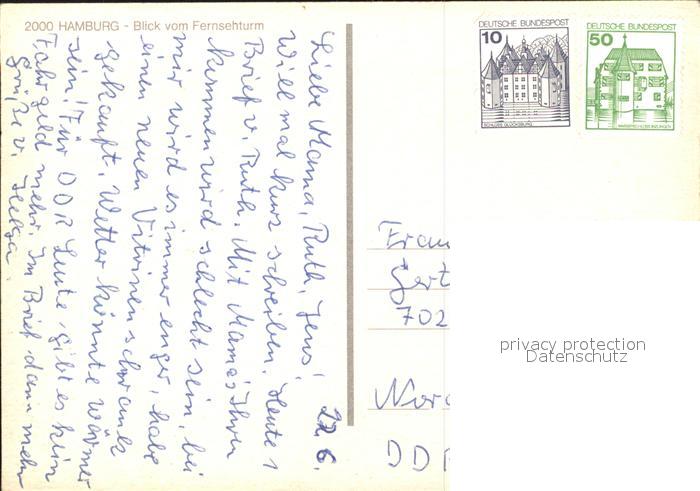 2000 HAMBURG - Blick vom Fernsehturm
22.6.
Liebe Mama, Ruth, Jens!
Will mal kurz schreiben. Heute 1
Brief v. Ruth. Mit Mamas Ihren
kommen wird schlecht sein, bei
mir wird es immer enger, habe
einen neuen Vitrinenschrank
gekauft. Wetter könnte wärmer
sein! Für DDR Leute gibt es kein
Fahrgeld mehr. Im Brief dann mehr
Grüße v. Helga.
DEUTSCHE BUNDESPOST
10
SCHLOSS GLÜCKSBURG
DEUTSCHE BUNDESPOST
50
WASSERSCHLOSS INZLINGEN
Frau
Gert
702
Nord
DDR
privacy protection
Datenschutz